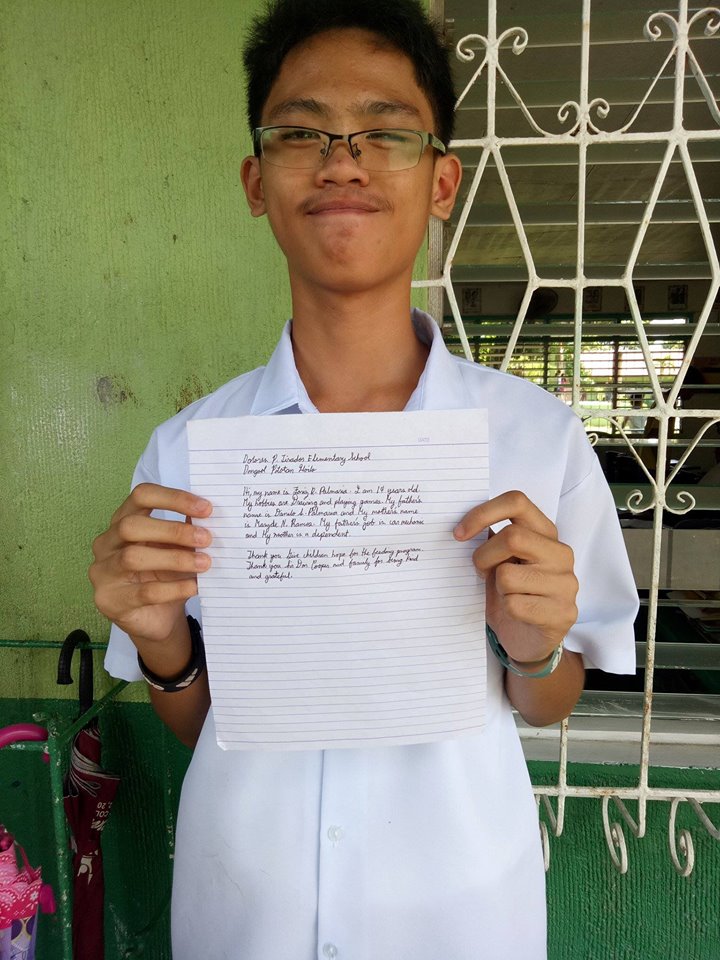 DATE
Dolores P. Tirador Elementary School
Dungon Pototan Iloilo
Hi, my name is R. Palmares. I am 14 years old.
My hobbies are Drawing and playing games. My father's
name is Danilo S. Palmares and My mother's name
is N. Ramos. My father's job is car mechanic
and My mother is a dependent.
Thank you Give children hope for the feeding program.
Thank you to Don Cooper and family for being kind
and grateful.
COL
20